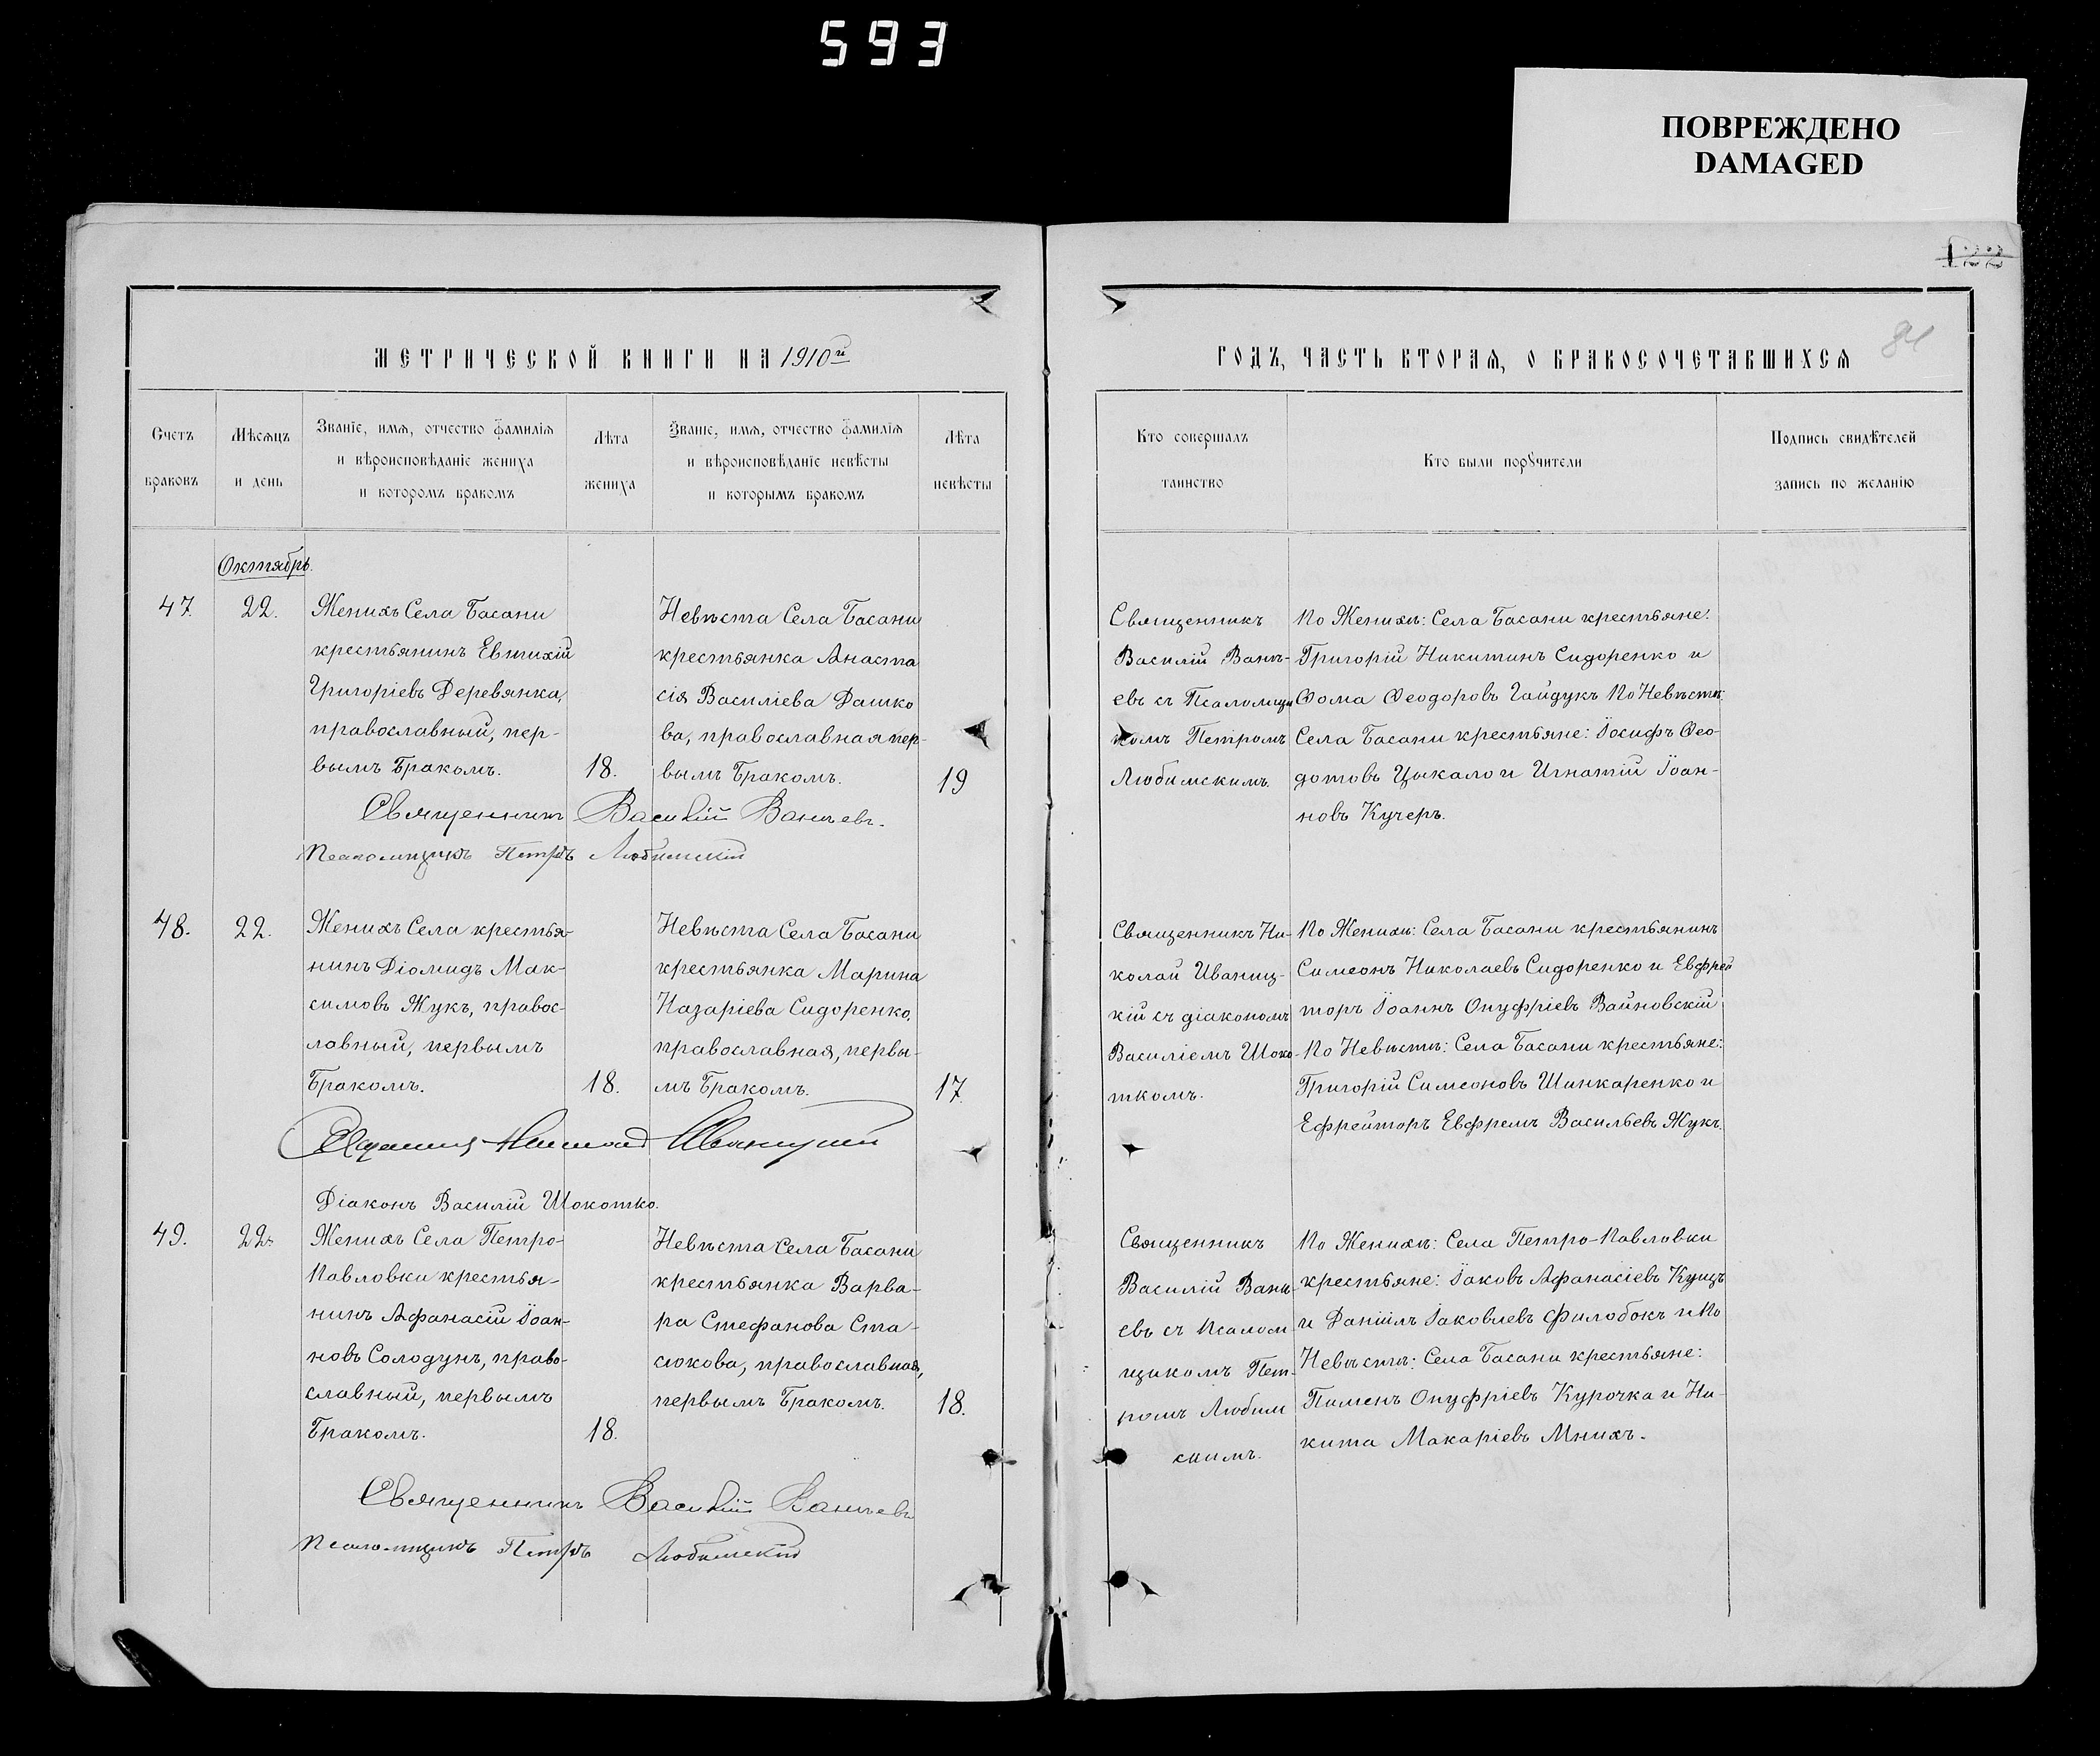 593
ПОВРЕЖДЕНО
DAMAGED
84
МЕТРИЧЕСКОЙ КНИГИ НА 1910й
ГОДЪ, ЧАСТЬ ВТОРАЯ, О БРАКОСОЧЕТАВШИХСЯ
Счетъ
браковъ
Мѣсяцъ
и день
Званїе, имя, отчество фамилїя
и вѣроисповѣданїе жениха
и которомъ бракомъ
Лѣта
жениха
Званїе, имя, отчество фамилїя
и вѣроисповѣданїе невѣсты
и которымъ бракомъ
Лѣта
невѣсты
Кто совершалъ
таинство
Кто были порꙋчители
Подпись свидѣтелей
запись по желанїю
Октябрь.
47.
22.
Женихъ Села Басани
крестьянинъ Евтихій
Григоріевъ Деревянка,
православный, пер-
вымъ бракомъ.
18.
Невѣста Села Басани
крестьянка Анаста
сія Василіева Дашко
ва, православная пер-
вымъ бракомъ.
19
Священникъ
Василій Ванъ-
евъ съ Псаломщи
комъ Петромъ
Любимскимъ.
По Женихѣ: Села Басани крестьяне:
Григорій Никитинъ Сидоренко и
Ѳома Ѳеодоровъ Гайдукъ По Невѣстѣ:
Села Басани крестьяне: Іосифъ Ѳео-
дотовъ Цыкало и Игнатій Іоан-
новъ Кучеръ.
Священникъ Василій Ваньевъ.
Псаломщикъ Петръ Любимскій
48.
22.
Женихъ Села крестья-
нинъ Діомидъ Мак-
симовъ Жукъ, правос-
лавный, первымъ
бракомъ.
18.
Невѣста Села Басани
крестьянка Марина
Назаріева Сидоренко,
православная, первы-
мъ бракомъ.
17.
Священникъ Ни-
колай Иваниц-
кій съ діакономъ
Василіемъ Шоко-
ткомъ.
По Женихѣ: Села Басани крестьянинъ
Симеонъ Николаевъ Сидоренко и Евфрей
торъ Іоаннъ Онуфріевъ Войновскій
По Невѣстѣ: Села Басани крестьяне:
Григорій Симеоновъ Шинкаренко и
Ефрейторъ Евфремъ Васильевъ Жукъ.
Николай Иваницкій
Діаконъ Василій Шокотко.
49.
22.
Женихъ Села Петро-
Павловки крестья-
нинъ Афанасій Іоан-
новъ Солодунъ, право-
славный, первымъ
бракомъ.
18.
Невѣста Села Басани
крестьянка Варва-
ра Стефанова Ста-
сюкова, православная,
первымъ бракомъ.
18.
Священникъ
Василій Вань-
евъ съ Псалом-
щикомъ Пет-
ромъ Любим
скимъ.
По Женихѣ: Села Петро-Павловки
крестьяне: Іаковъ Афанасіевъ Кущъ
и Даніилъ Іаковлевъ Филобокъ и По
Невѣстѣ: Села Басани крестьяне:
Пименъ Онуфріевъ Курочка и Ни-
кита Макаріевъ Мнихъ.
Священникъ Василій Ваньевъ
Псаломщикъ Петръ Любимскій